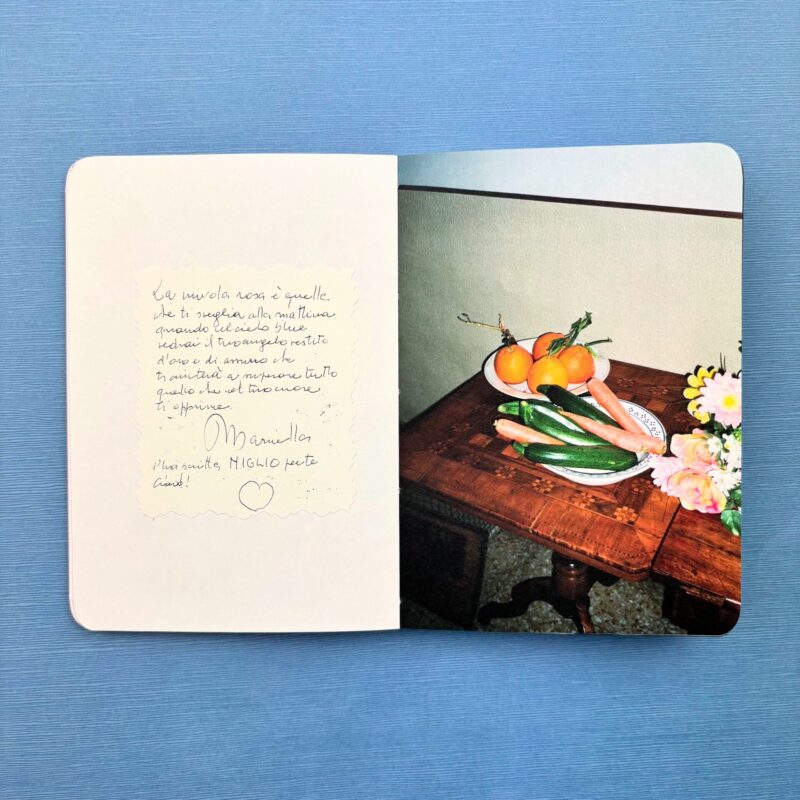 La nuvola rosa è quella
che ti sveglia alla mattina
quando nel cielo blue
vedrai il tuo angelo vestito
d'oro e di azzurro che
ti aiuterà a superare tutto
quello che nel tuo cuore
ti opprime.
Mariella
l'ha scritta, MIGLIO per te
ciao!